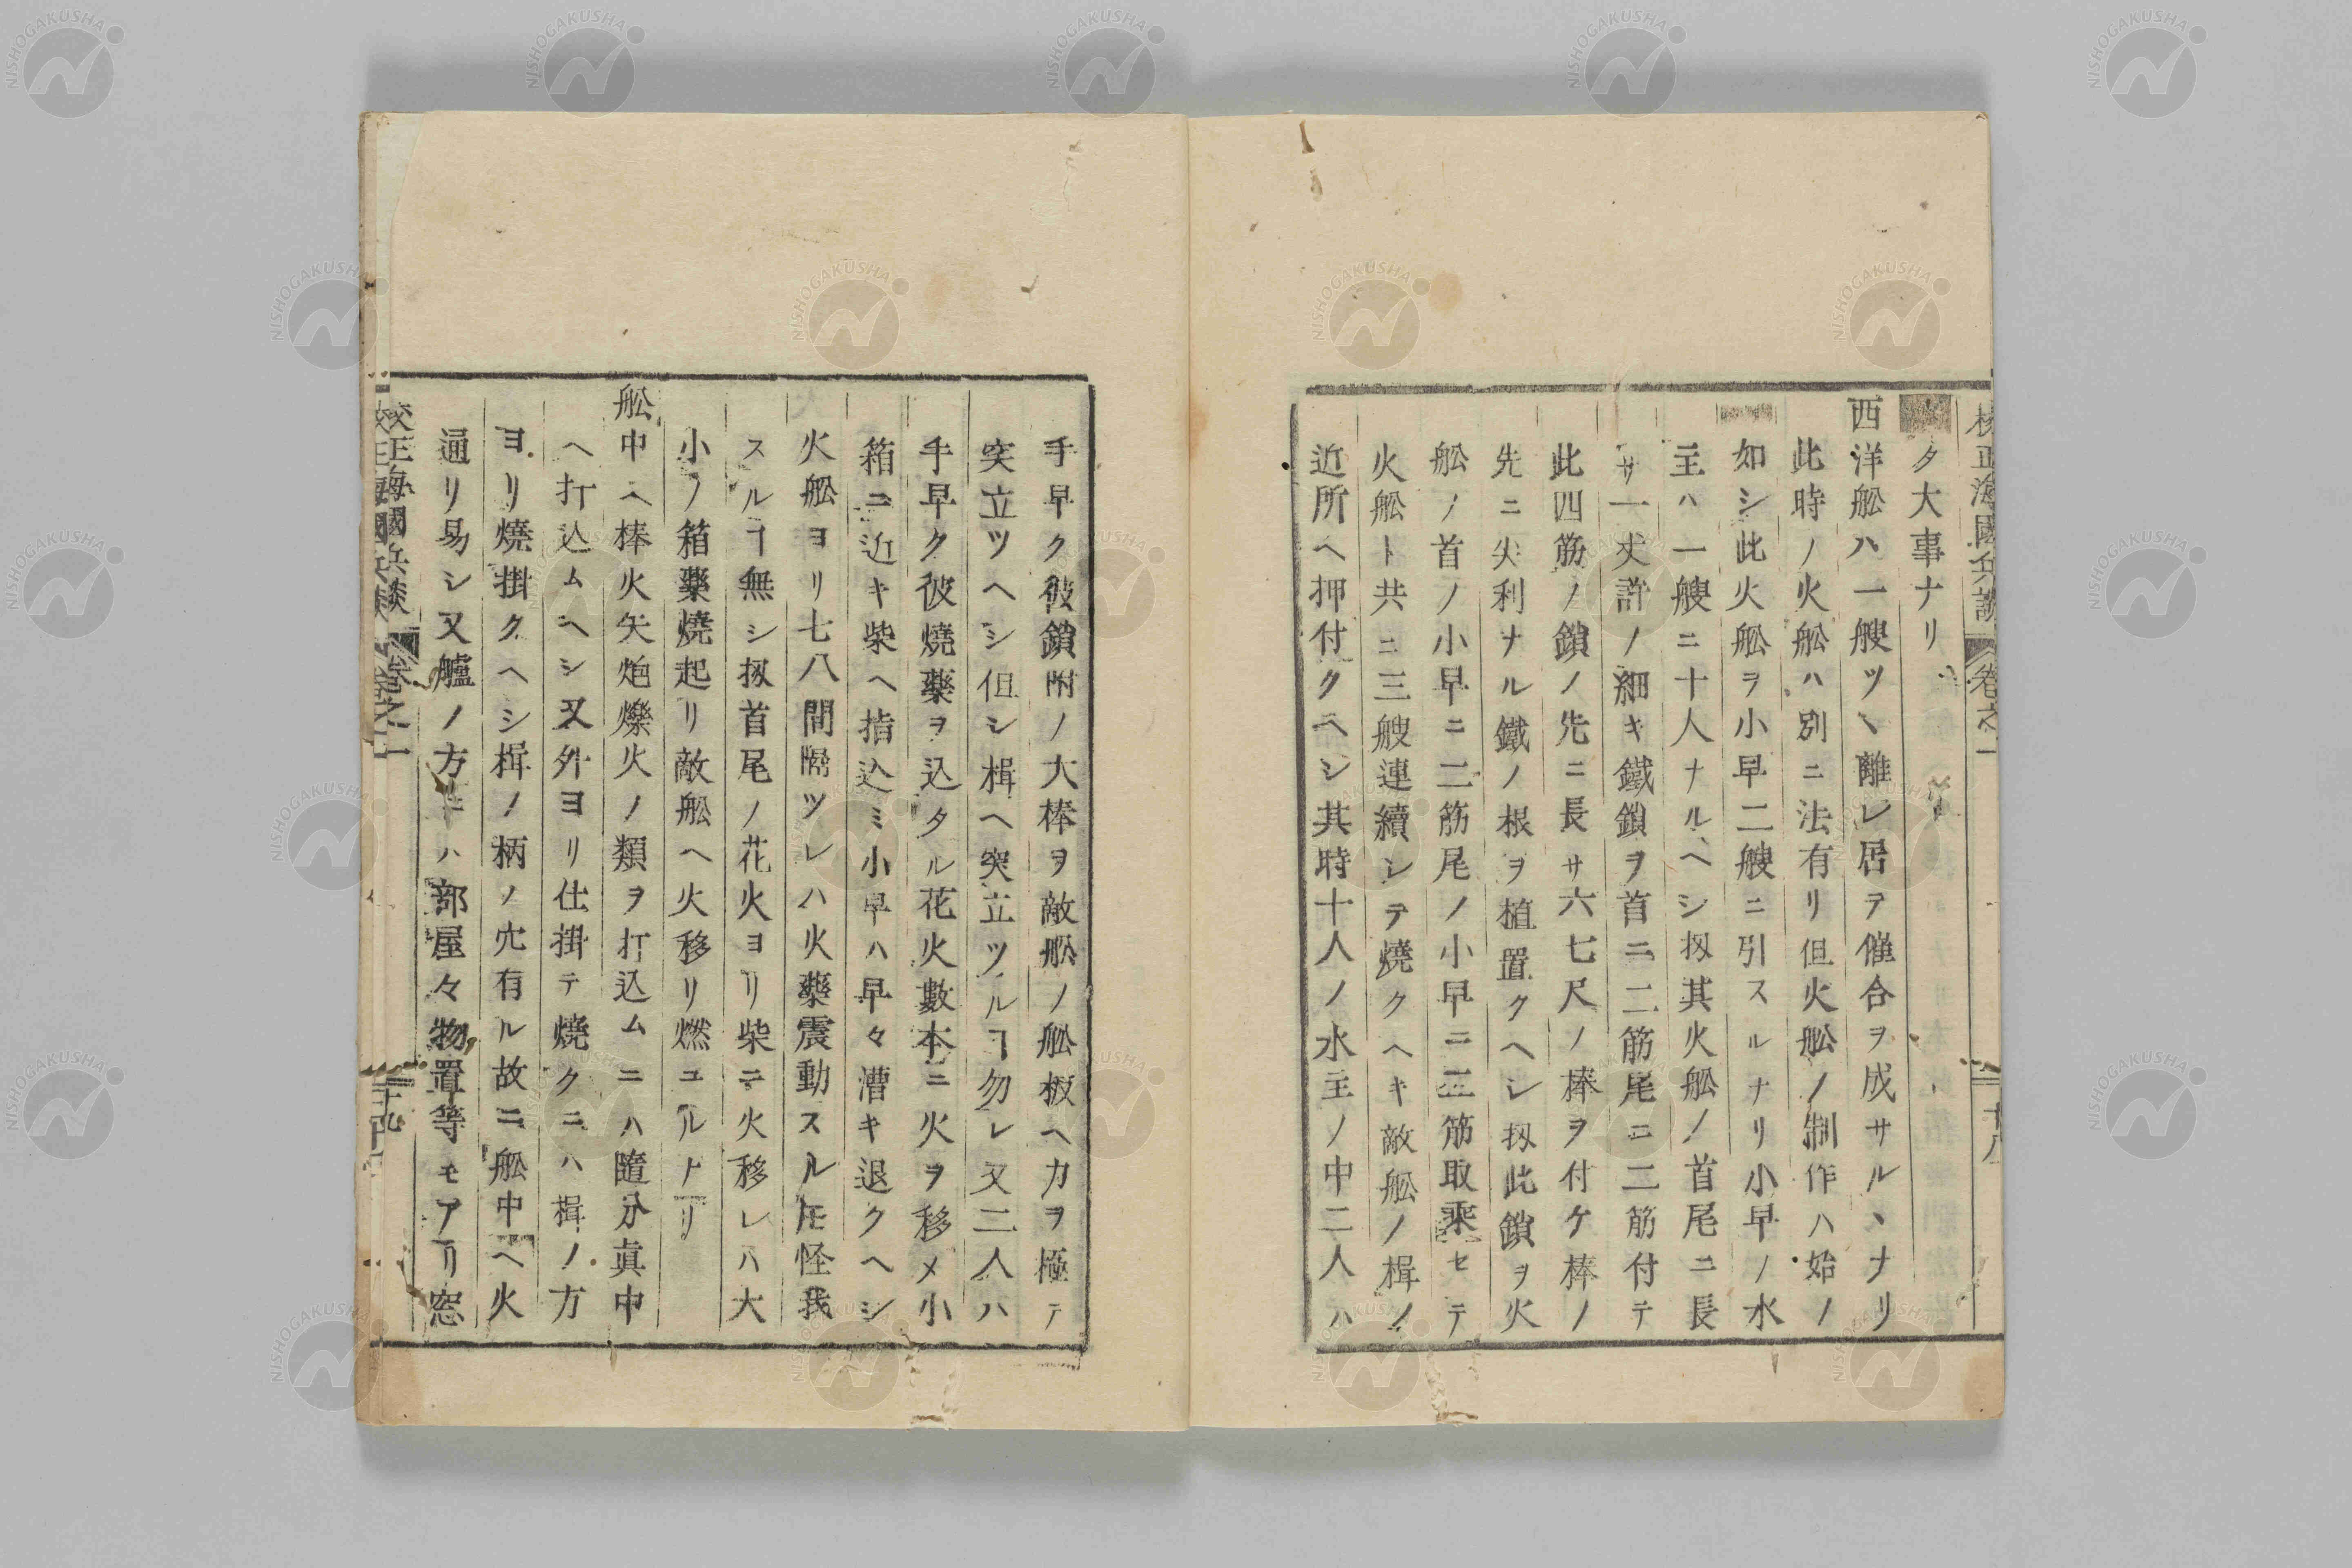 タ大事ナリ
西洋舩ハ一艘ツヽ離レ居テ催合ヲ成サルヽナリ
此時ノ火舩ハ別ニ法有リ但火舩ノ制作ハ始ノ
如シ此火舩ヲ小早二艘ニ引スルナリ小早ノ水
主ハ一艘ニ十人ナルヘシ扨其火舩ノ首尾ニ長
サ一丈許ノ細キ鐵鎖ヲ首ニ二筋尾ニ二筋付テ
此四筋ノ鎖ノ先ニ長サ六七尺ノ棒ヲ付ケ棒ノ
先ニ尖利ナル鐵ノ根ヲ植置クヘシ扨此鎖ヲ火
舩ノ首ノ小早ニ二筋尾ノ小早ニ二筋取乘セテ
火舩ト共ニ三艘連續シテ燒クヘキ敵舩ノ楫ノ
近所ヘ押付クヘシ其時十人ノ水主ノ中二人ハ
手早ク彼鎖附ノ大棒ヲ敵舩ノ舩板ヘ力ヲ極テ
突立ツヘシ但シ楫ヘ突立ツルヿ勿レ又二人ハ
手早ク彼燒藥ヲ込タル花火數本ニ火ヲ移メ小
箱ニ近キ柴ヘ指込ミ小早ハ早々漕キ退クヘシ
火舩ヨリ七八間隔ツレハ火藥震動スル𪜈怪我
スルヿ無シ扨首尾ノ花火ヨリ柴ニ火移レハ大
小ノ箱藥燒起リ敵舩ヘ火移リ燃ユルナリ
舩中ヘ棒火矢炮爍火ノ類ヲ打込ムニハ隨分眞中
ヘ打込ムヘシ又外ヨリ仕掛テ燒クニハ楫ノ方
ヨリ燒掛クヘシ楫ノ柄ノ穴有ル故ニ舩中ヘ火
通リ易シ又艫ノ方ニハ部屋々物置等モアリ窓
校正海國兵談 卷之一